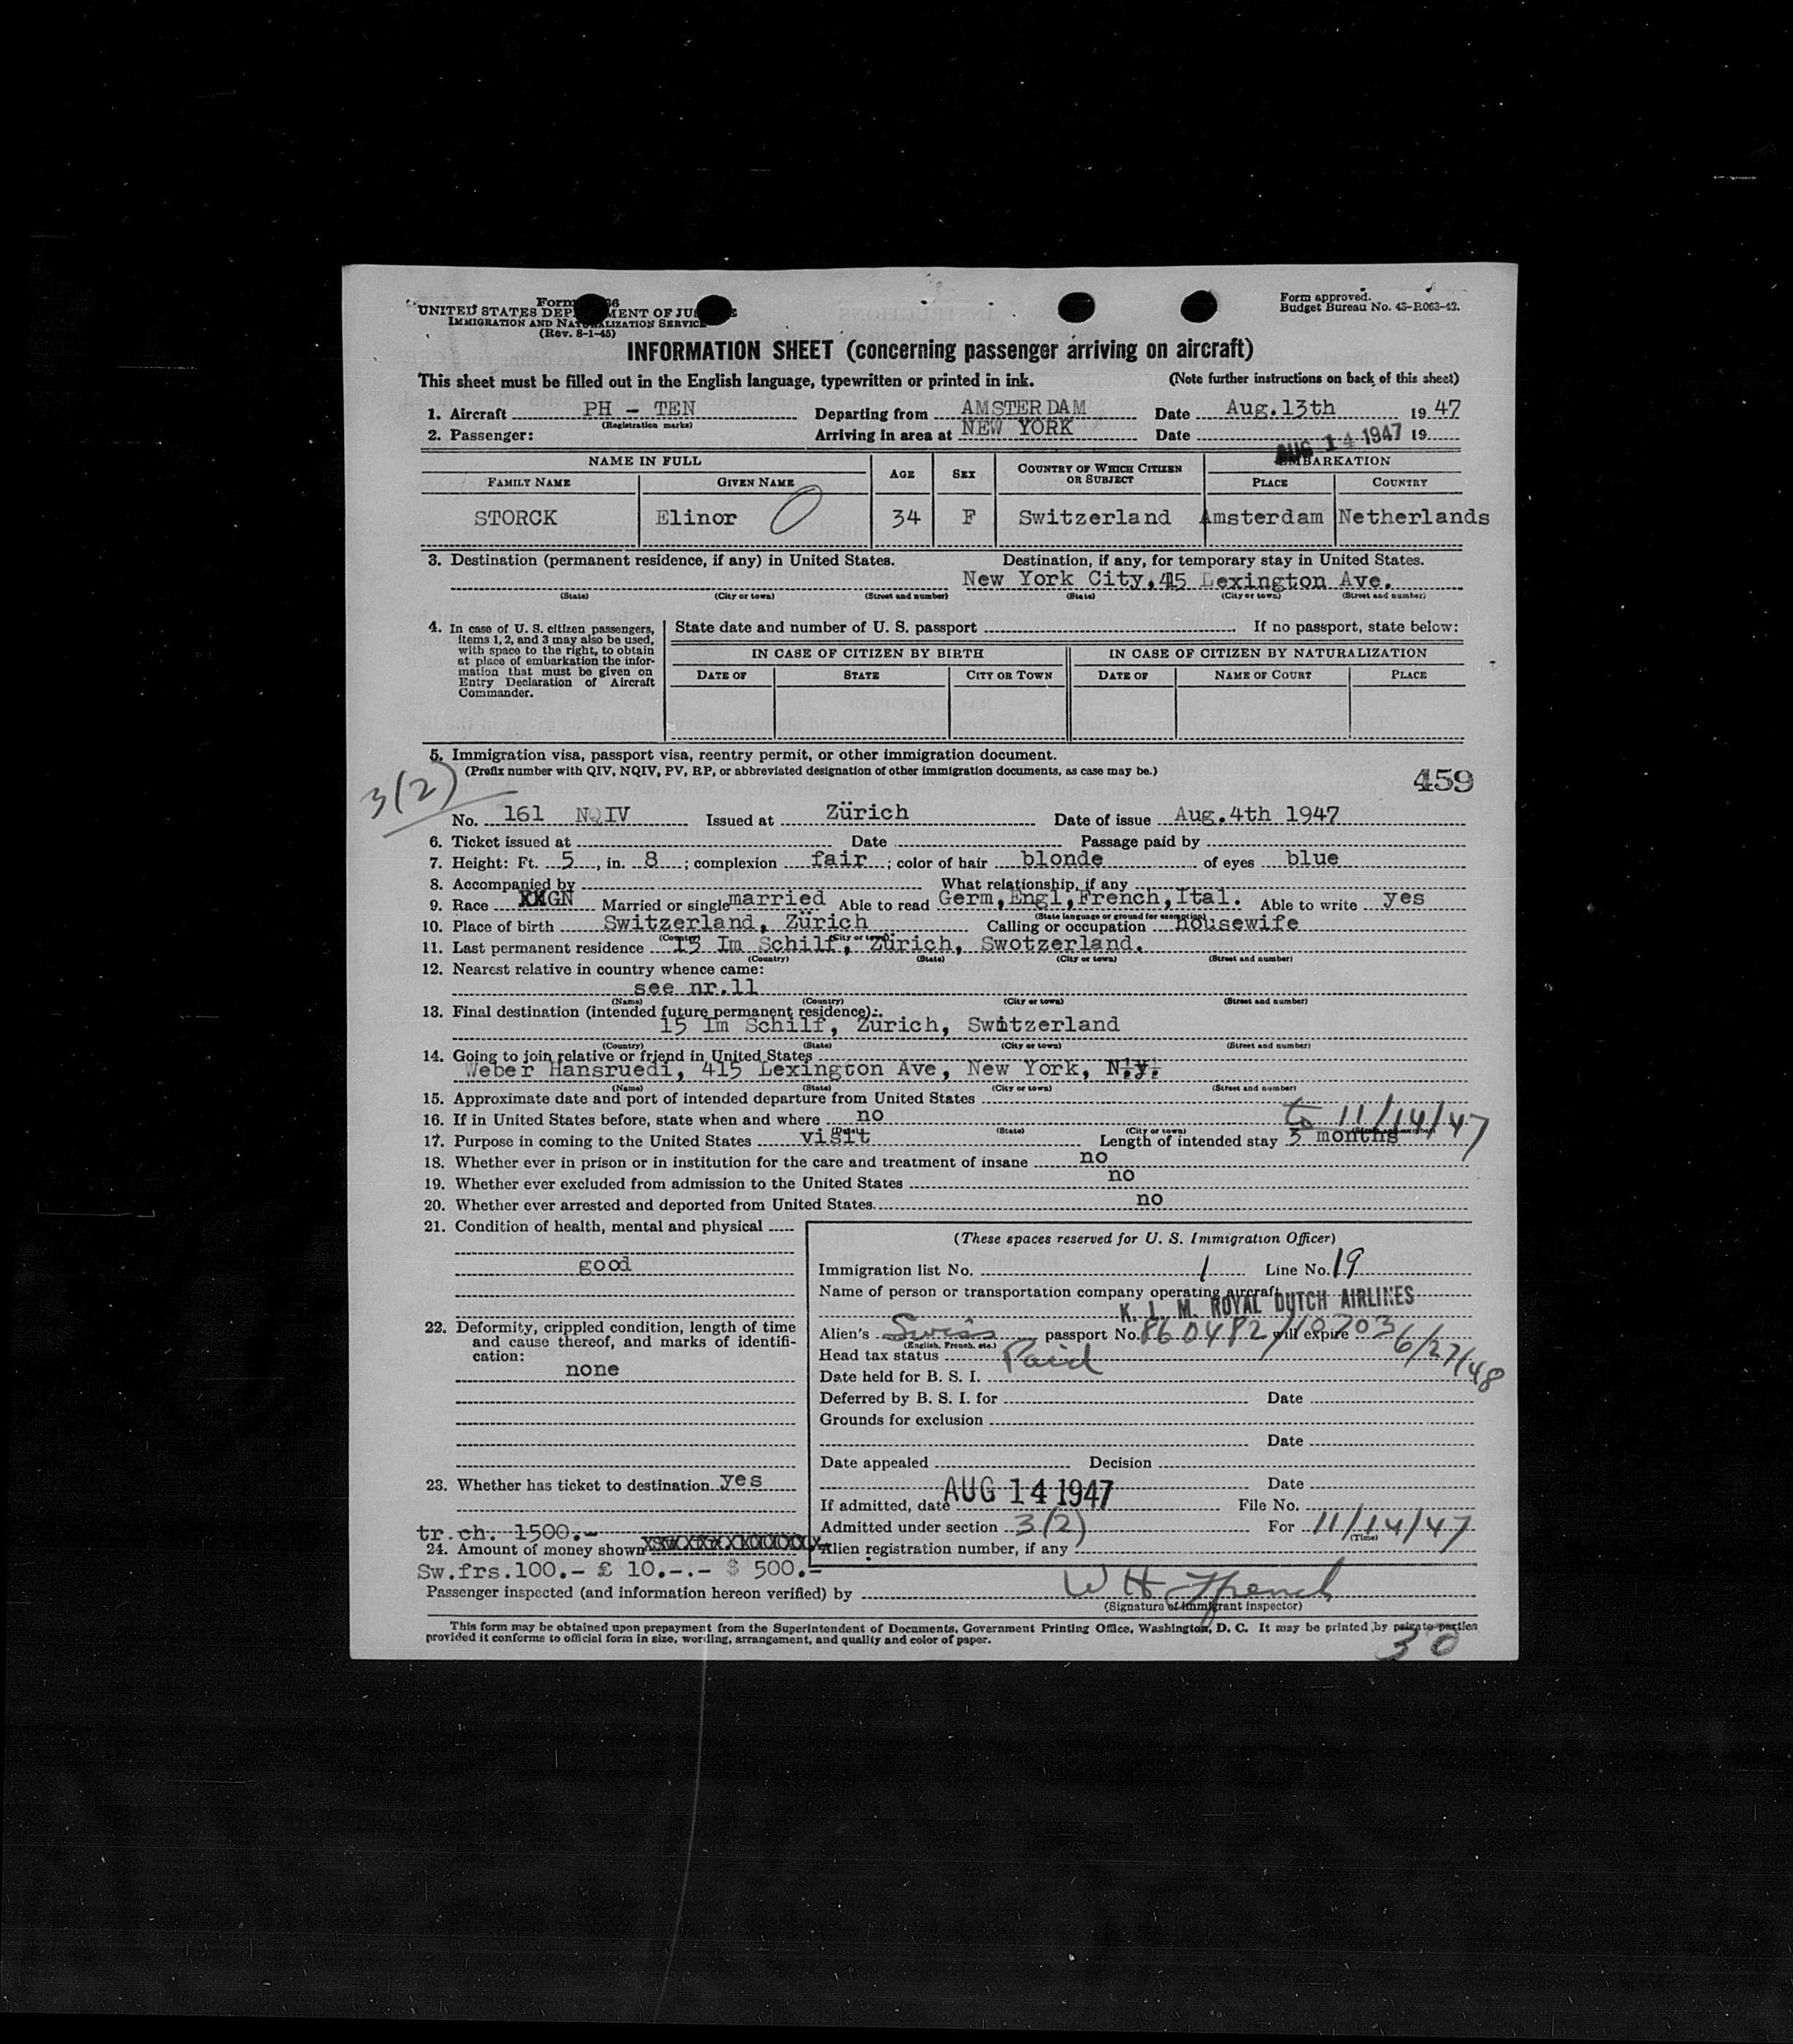 Form
UNITED STATES DEPARTMENT OF JUSTICE
IMMIGRATION AND NATURALIZATION SERVICE
(Rev. 8-1-45)
Form approved.
Budget Bureau No. 43-R063-43.
INFORMATION SHEET (concerning passenger arriving on aircraft)
This sheet must be filled out in the English language, typewritten or printed in ink. (Note further instructions on back of this sheet)
1. Aircraft PH - TEN Departing from AMSTERDAM Date Aug.13th 19 47
(Registration marks)
2. Passenger: Arriving in area at NEW YORK Date AUG 14 1947 19
NAME IN FULL AGE SEX COUNTRY OF WHICH CITIZEN OR SUBJECT EMBARKATION
FAMILY NAME GIVEN NAME PLACE COUNTRY
STORCK Elinor 34 F Switzerland Amsterdam Netherlands
3. Destination (permanent residence, if any) in United States. Destination, if any, for temporary stay in United States.
New York City, 415 Lexington Ave.
(State) (City or town) (Street and number) (State) (City or town) (Street and number)
4. In case of U. S. citizen passengers, items 1, 2, and 3 may also be used, with space to the right, to obtain at place of embarkation the information that must be given on Entry Declaration of Aircraft Commander.
State date and number of U. S. passport If no passport, state below:
IN CASE OF CITIZEN BY BIRTH IN CASE OF CITIZEN BY NATURALIZATION
DATE OF STATE CITY OR TOWN DATE OF NAME OF COURT PLACE
5. Immigration visa, passport visa, reentry permit, or other immigration document.
(Prefix number with QIV, NQIV, PV, RP, or abbreviated designation of other immigration documents, as case may be.)
459
3(2)
No. 161 NQIV Issued at Zürich Date of issue Aug.4th 1947
6. Ticket issued at Date Passage paid by
7. Height: Ft. 5, in. 8; complexion fair; color of hair blonde of eyes blue
8. Accompanied by What relationship, if any
9. Race GN Married or single married Able to read Germ, Engl, French, Ital. Able to write yes
(State language or ground for exemption)
10. Place of birth Switzerland, Zürich Calling or occupation housewife
(Country) (City or town)
11. Last permanent residence 15 Im Schilf, Zürich, Swotzerland.
(Country) (State) (City or town) (Street and number)
12. Nearest relative in country whence came:
see nr.11
(Name) (Country) (City or town) (Street and number)
13. Final destination (intended future permanent residence):
15 Im Schilf, Zürich, Switzerland
(Country) (State) (City or town) (Street and number)
14. Going to join relative or friend in United States
Weber Hansruedi, 415 Lexington Ave, New York, N.y.
(Name) (State) (City or town) (Street and number)
15. Approximate date and port of intended departure from United States
16. If in United States before, state when and where no to 11/14/47
(Date) (State) (City or town) (Street and number)
17. Purpose in coming to the United States visit Length of intended stay 3 months
18. Whether ever in prison or in institution for the care and treatment of insane no
19. Whether ever excluded from admission to the United States no
20. Whether ever arrested and deported from United States no
21. Condition of health, mental and physical
good
22. Deformity, crippled condition, length of time and cause thereof, and marks of identification:
none
23. Whether has ticket to destination yes
tr.ch. 1500.-
24. Amount of money shown
Sw.frs.100.- £ 10.-.- $ 500.-
(These spaces reserved for U. S. Immigration Officer)
Immigration list No. 1 Line No. 19
Name of person or transportation company operating aircraft
K. L. M. ROYAL DUTCH AIRLINES
Alien's Swiss passport No. 860482/10703 will expire 6/27/48
(English, French, etc.)
Head tax status Paid
Date held for B. S. I.
Deferred by B. S. I. for Date
Grounds for exclusion
Date
Date appealed Decision
Date
If admitted, date AUG 14 1947 File No.
Admitted under section 3(2) For 11/14/47
(Time)
Alien registration number, if any
Passenger inspected (and information hereon verified) by W H French
(Signature of immigrant inspector)
This form may be obtained upon prepayment from the Superintendent of Documents, Government Printing Office, Washington, D. C. It may be printed by private parties
provided it conforms to official form in size, wording, arrangement, and quality and color of paper.
30